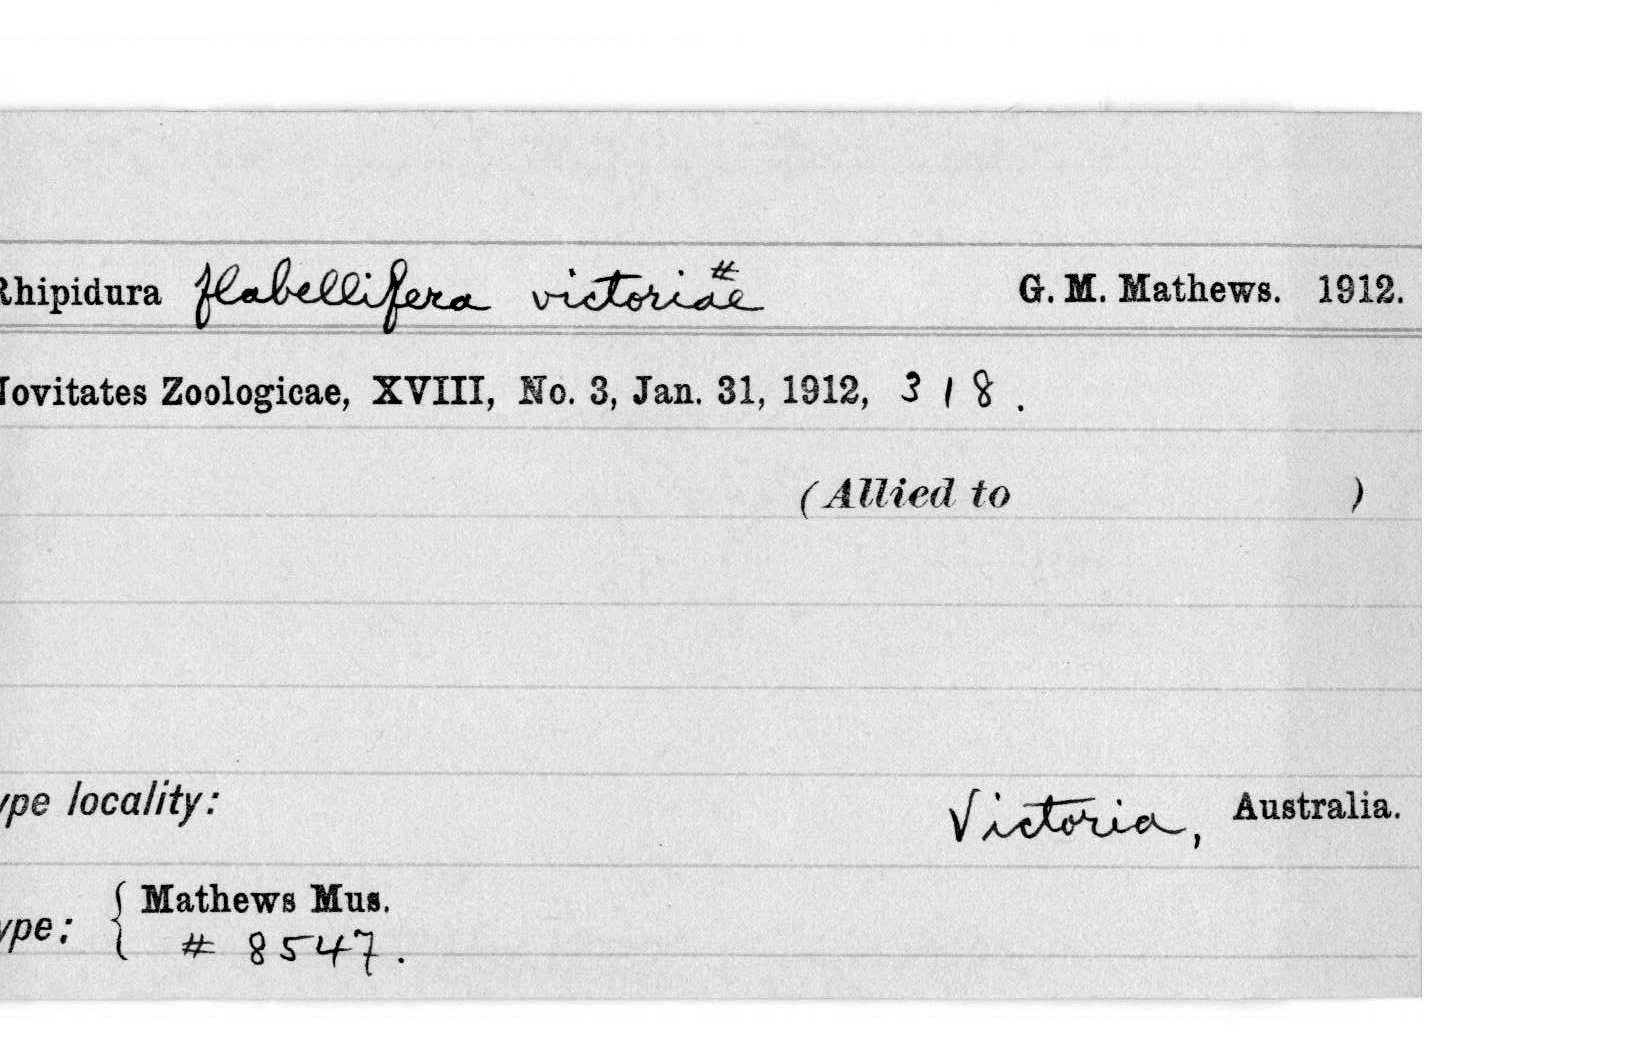 Rhipidura flabellifera victoriae # G. M. Mathews. 1912.
Novitates Zoologicae, XVIII, No. 3, Jan. 31, 1912, 318.
(Allied to )
ype locality: Victoria, Australia.
Mathews Mus.
ype: { # 8547.